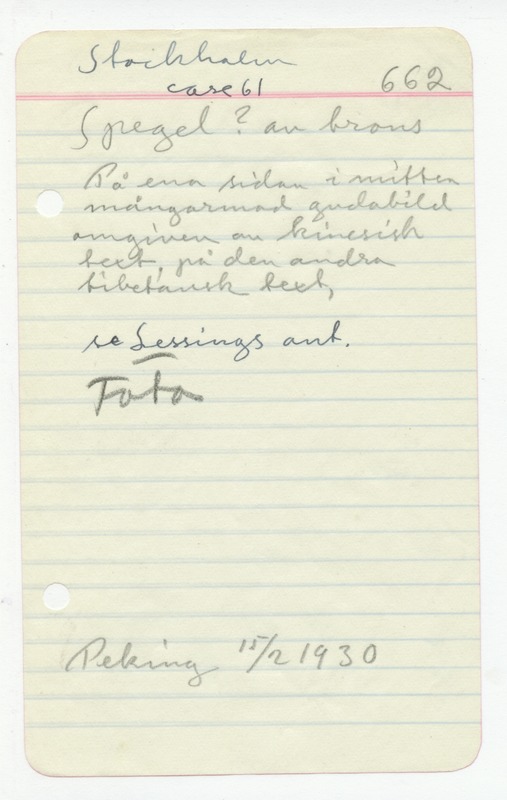 Stockholm
case 61
662
Spegel? av brons
På ena sidan i mitten
mångarmad gudabild
omgiven av kinesisk
text, på den andra
tibetansk text,
se Lessings ant.
Foto
Peking 15/2 1930